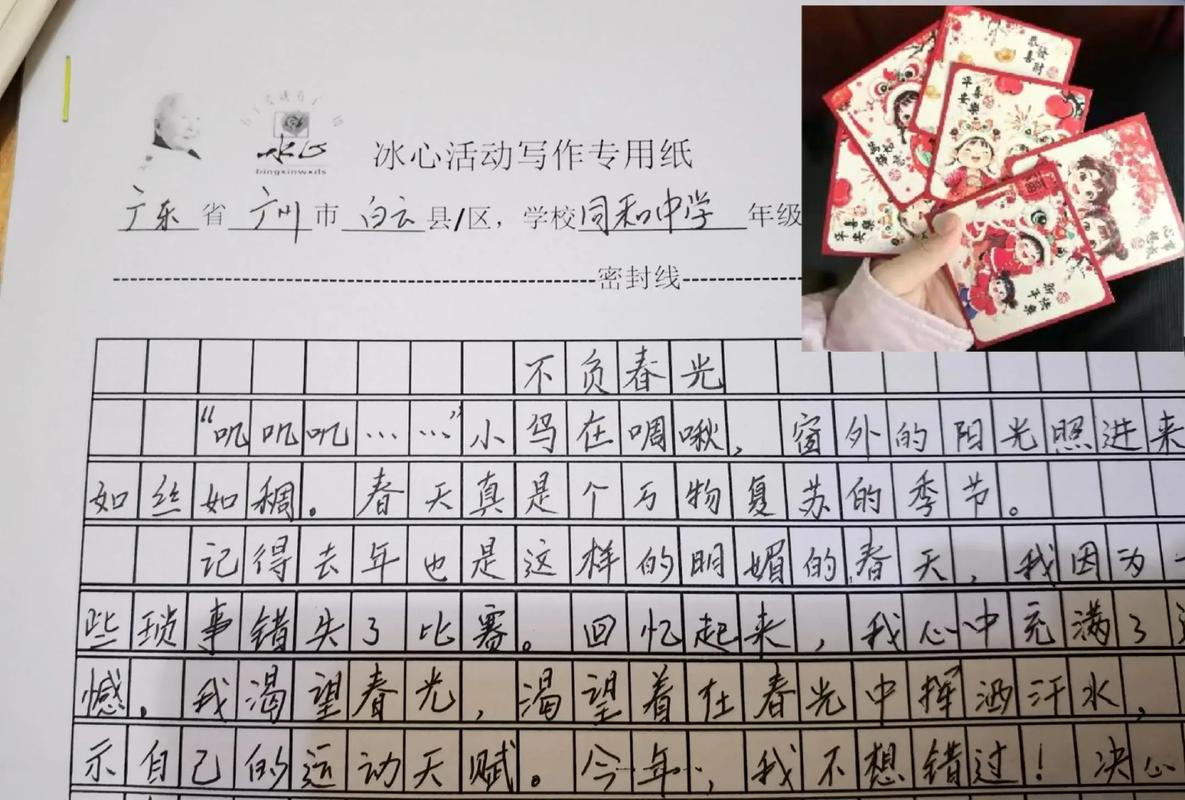 冰心
bingxinwxds
冰心活动写作专用纸
广东省广州市白云县/区,学校同和中学年级
密封线
不负春光
“叽叽叽……”小鸟在啁啾,窗外的阳光照进来
如丝如稠。春天真是个万物复苏的季节。
记得去年也是这样的明媚的春天,我因为一
些琐事错失了比赛。回忆起来,我心中充满了
憾。我渴望春光,渴望着在春光中挥洒汗水,
示自己的运动天赋。今年,我不想错过!决心
恭喜發財
平安喜樂
新年快樂
平安喜樂